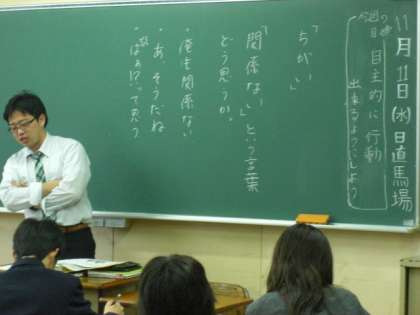 11月11日(水)日直馬場
今週の目標
自主的に行動
出来るようにしよう
「ちがい」
「関係ない」という言葉
どう思うか。
・俺も関係ない
・あ、そうだね
・はぁ!?って思う